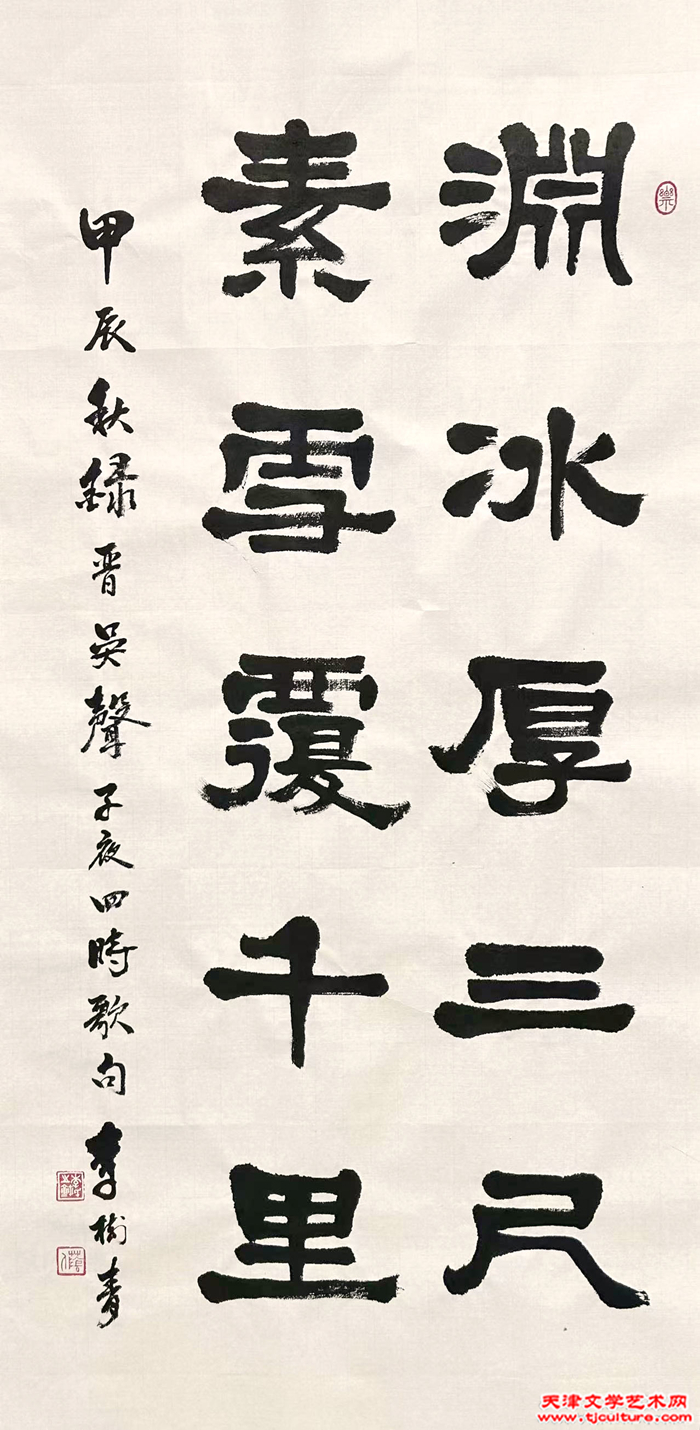 淵冰厚三尺
素雪覆千里
甲辰秋録晉吳聲子夜四時歌句 李樹青
樂
天津文学艺术网
www.tjculture.com